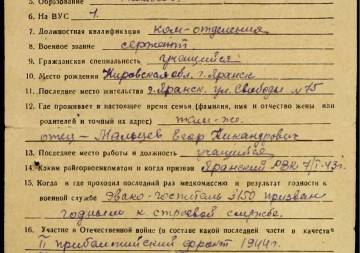 5. Образование
6. На ВУС 1.
7. Должностная квалификация ком-отделения
8. Военное звание сержант
9. Гражданская специальность учащийся
10. Место рождения Кировская обл. г. Яранск
11. Последнее место жительства г. Яранск ул. Свободы №75
12. Где проживает в настоящее время семья (фамилия, имя и отчество жены или
родителей и точный их адрес) там-же.
отец – Мальцев Егор Никандрович
13. Последнее место работы и должность учащийся
14. Каким райгорвоенкоматом и когда призван Яранский РВК 7/I-43г.
15. Когда и где проходил последний раз медкомиссию и результат годности к
военной службе Эвако-госпиталь 3150 признан
годным к строевой службе.
16. Участие в Отечественной войне (в составе какой последней части и в качест
II прибалтийский фронт 1944г.